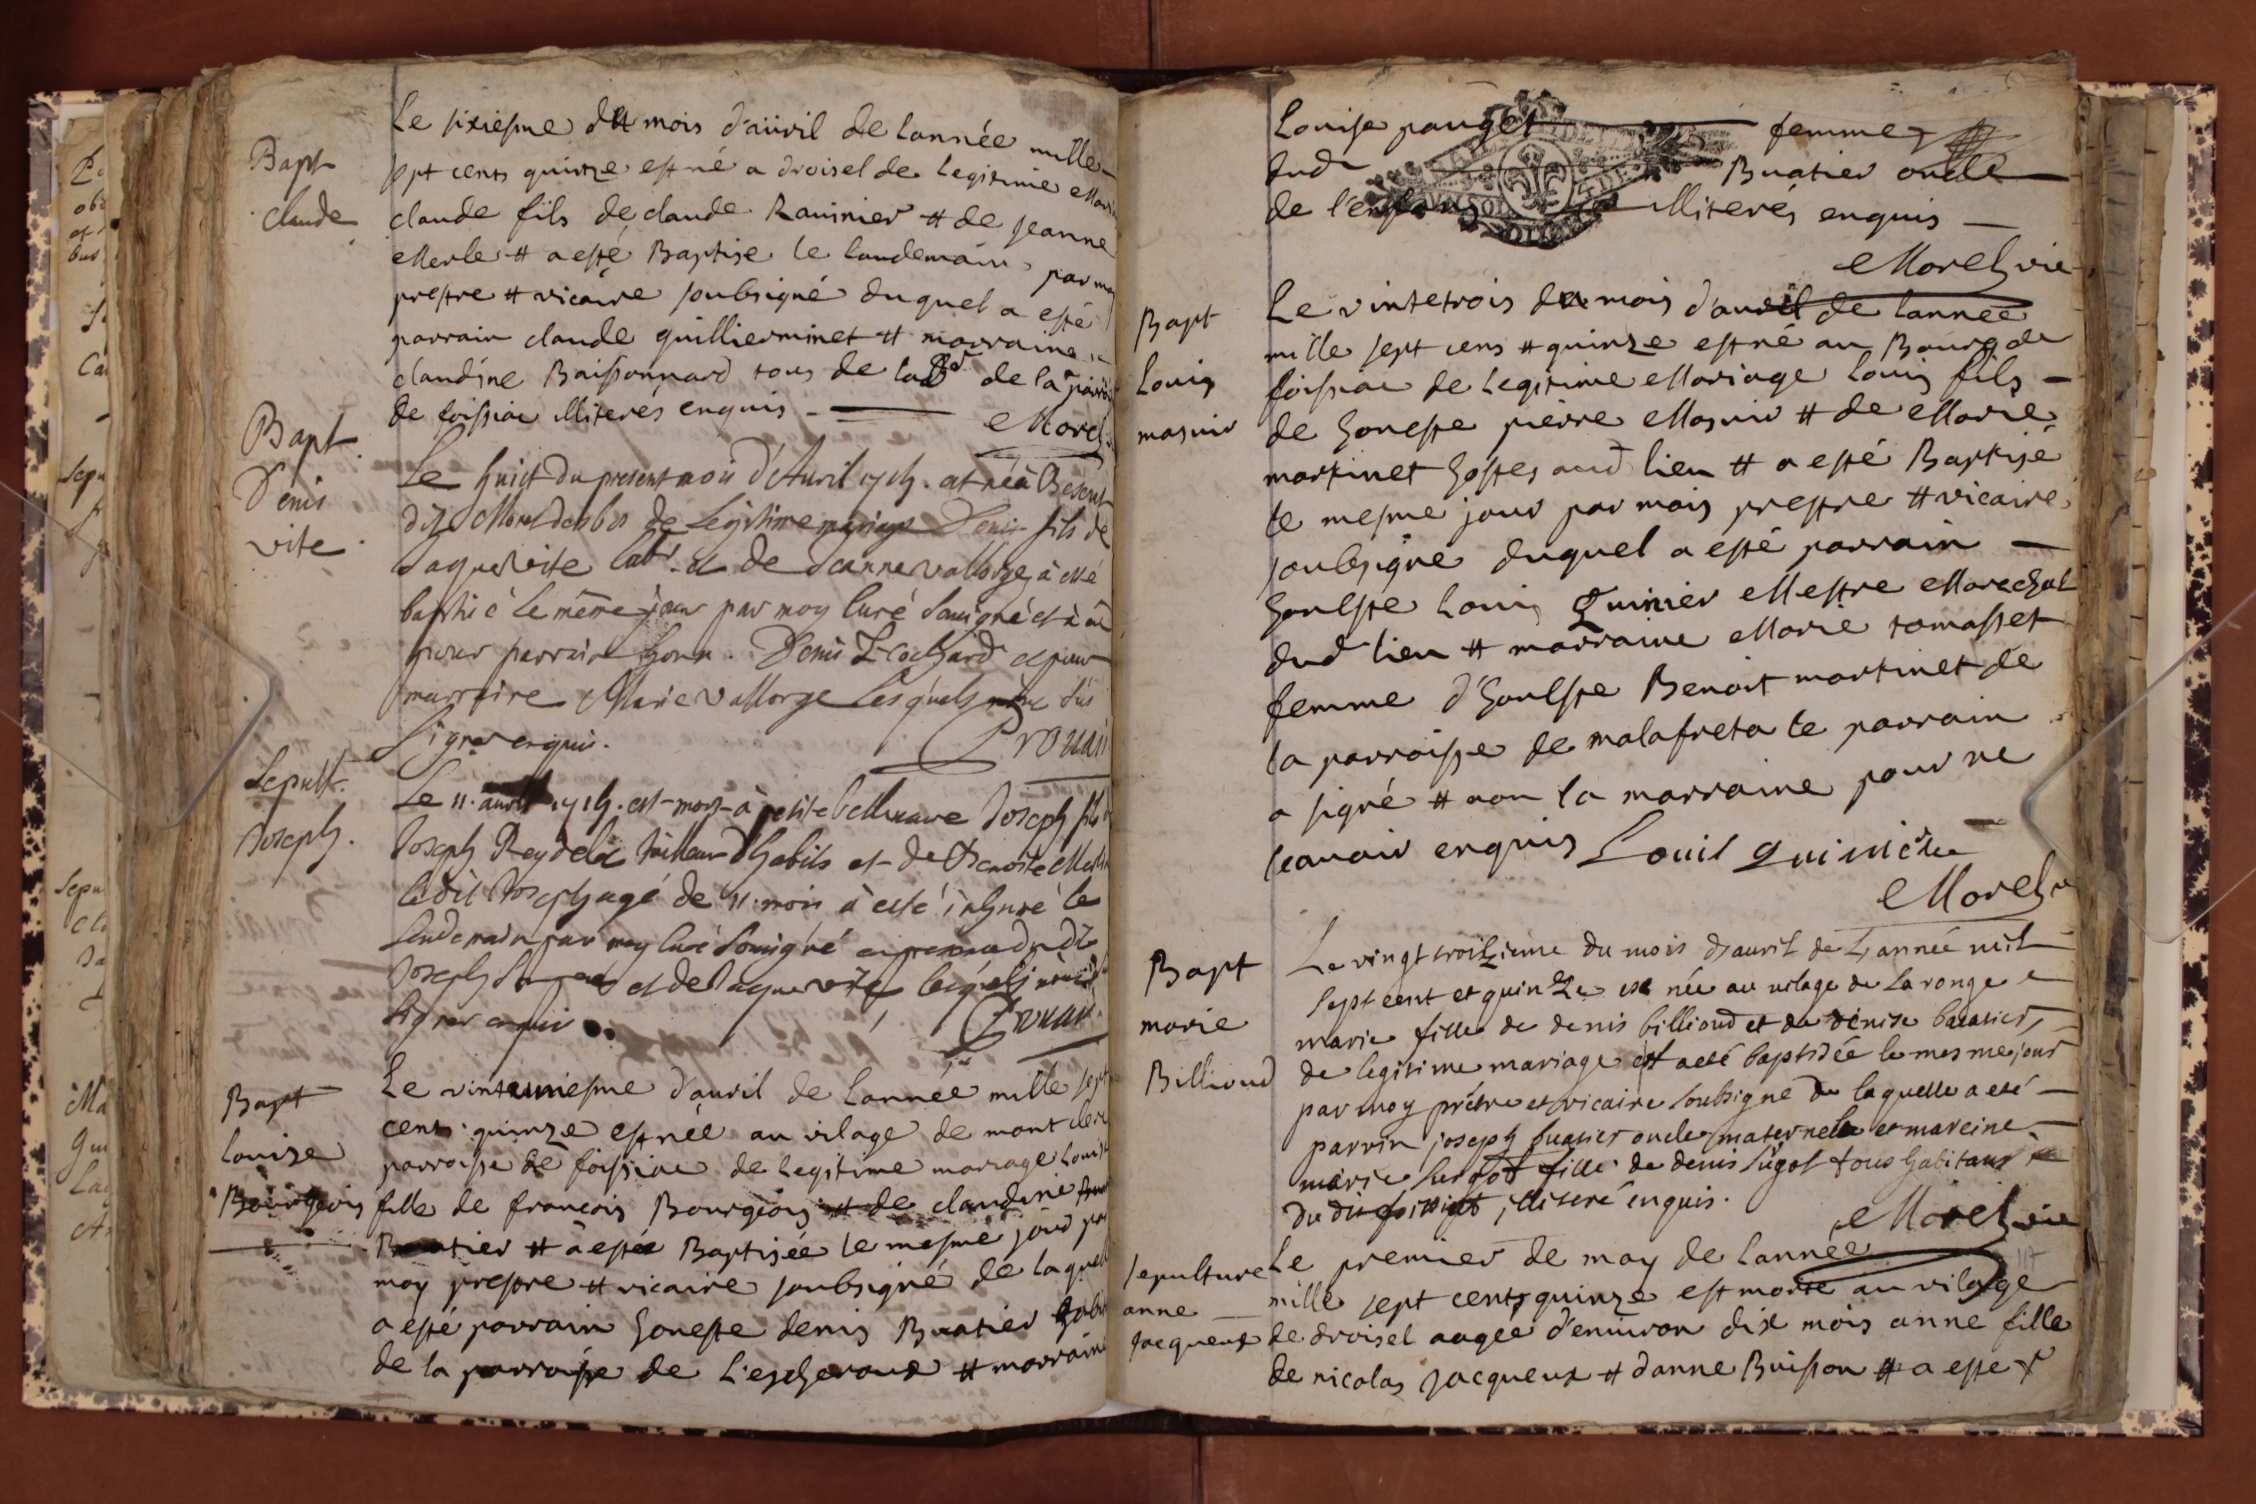 Bapt
claude
Le sixiesme du mois d'auril de lannée mille
sept cents quinze est né a droisel de legitime Maria
claude fils de claude Rauinier et de jeanne
Merle et a esté Baptise le landemain par moy
prestre et vicaire soubsigné duquel a esté
parrain claude guillierminet et marraine
claudine Baissonnard tous de la de la parro
de foissiac illiterés enquis
Morel
Bapt
Denis
vite
Le huict du present mois d'Auril 1715. est né à
dit Morel de Legitime mariage Denis fils de
Jaque vite labr. et de Jeanne vallorge à esté
baptisé le même jour par moy Curé Soussigné et à eu
pour parrain honn. Denis Brochard et pour
marraine Marie vallorge lesquels n'ont sus
Signer enquis.
Prouan
Sepult.
Joseph.
Le 11. auril 1715. est mort à petite bellevavre Joseph fils
Joseph Reydelet tailleur d'habits et de Benoite Merle
ledit Joseph agé de 11. mois à esté inhumé le
lendemain par moy Curé Soussigné en presence dudit
Joseph et de Jaque vite lesquels n'ont
Signer enquis
Prouan
Bapt
Louise
Bourgeois
Le vinteuniesme d'auril de lannée mille sept
cents quinze est née au vilage de mont
parroisse de foissiac de legitime mariage Louise
fille de francois Bourgeois et de claudine
Buatier et a estée Baptisée le mesme jour par
moy prestre et vicaire soubsigné de laquelle
a esté parrain honeste denis Buatier
de la parroisse de Lescheroux et marraine
Louise pauget femme
dud Buatier oncle
de l'enfans illiterés enquis
Morel vic
Bapt
Louis
masnir
Le vintetrois du mois d'auril de lannée
mille sept cens et quinze est né au Bourg de
foissiac de legitime Mariage Louis fils
de honeste pierre Masnir et de Marie
martinet hostes aud lieu et a esté Baptisé
le mesme jour par mois prestre et vicaire
soubsigné duquel a esté parrain
honeste Louis Quinier Mestre Marechal
dud lieu et marraine Marie tomasset
femme d'honeste Benoit martinet de
la parroisse de malafreta le parrain
a signé et non la marraine pour ne
scauoir enquis Louis quinier
Morel v
Bapt
marie
Billioud
Le vingt troizieme du mois d'auril de L'année mil
sept cent et quinze est née au vilage de Laronge
marie fille de denis billioud et de denise buatier
de legitime mariage et a eté baptisée le mesme jour
par moy prétre et vicaire soubsigné de laquelle a eté
parrin joseph buatier oncle maternelle et mareine
marie fille de denis tous habitans
du dit foissiat illiteré enquis.
Morel vic
sepulture
anne
jacqueux
Le premier de may de lannée
mille sept cents quinze est morte au vilage
de droisel aagée d'enuiron dix mois anne fille
de nicolas jacqueux et danne Buisson et a esté